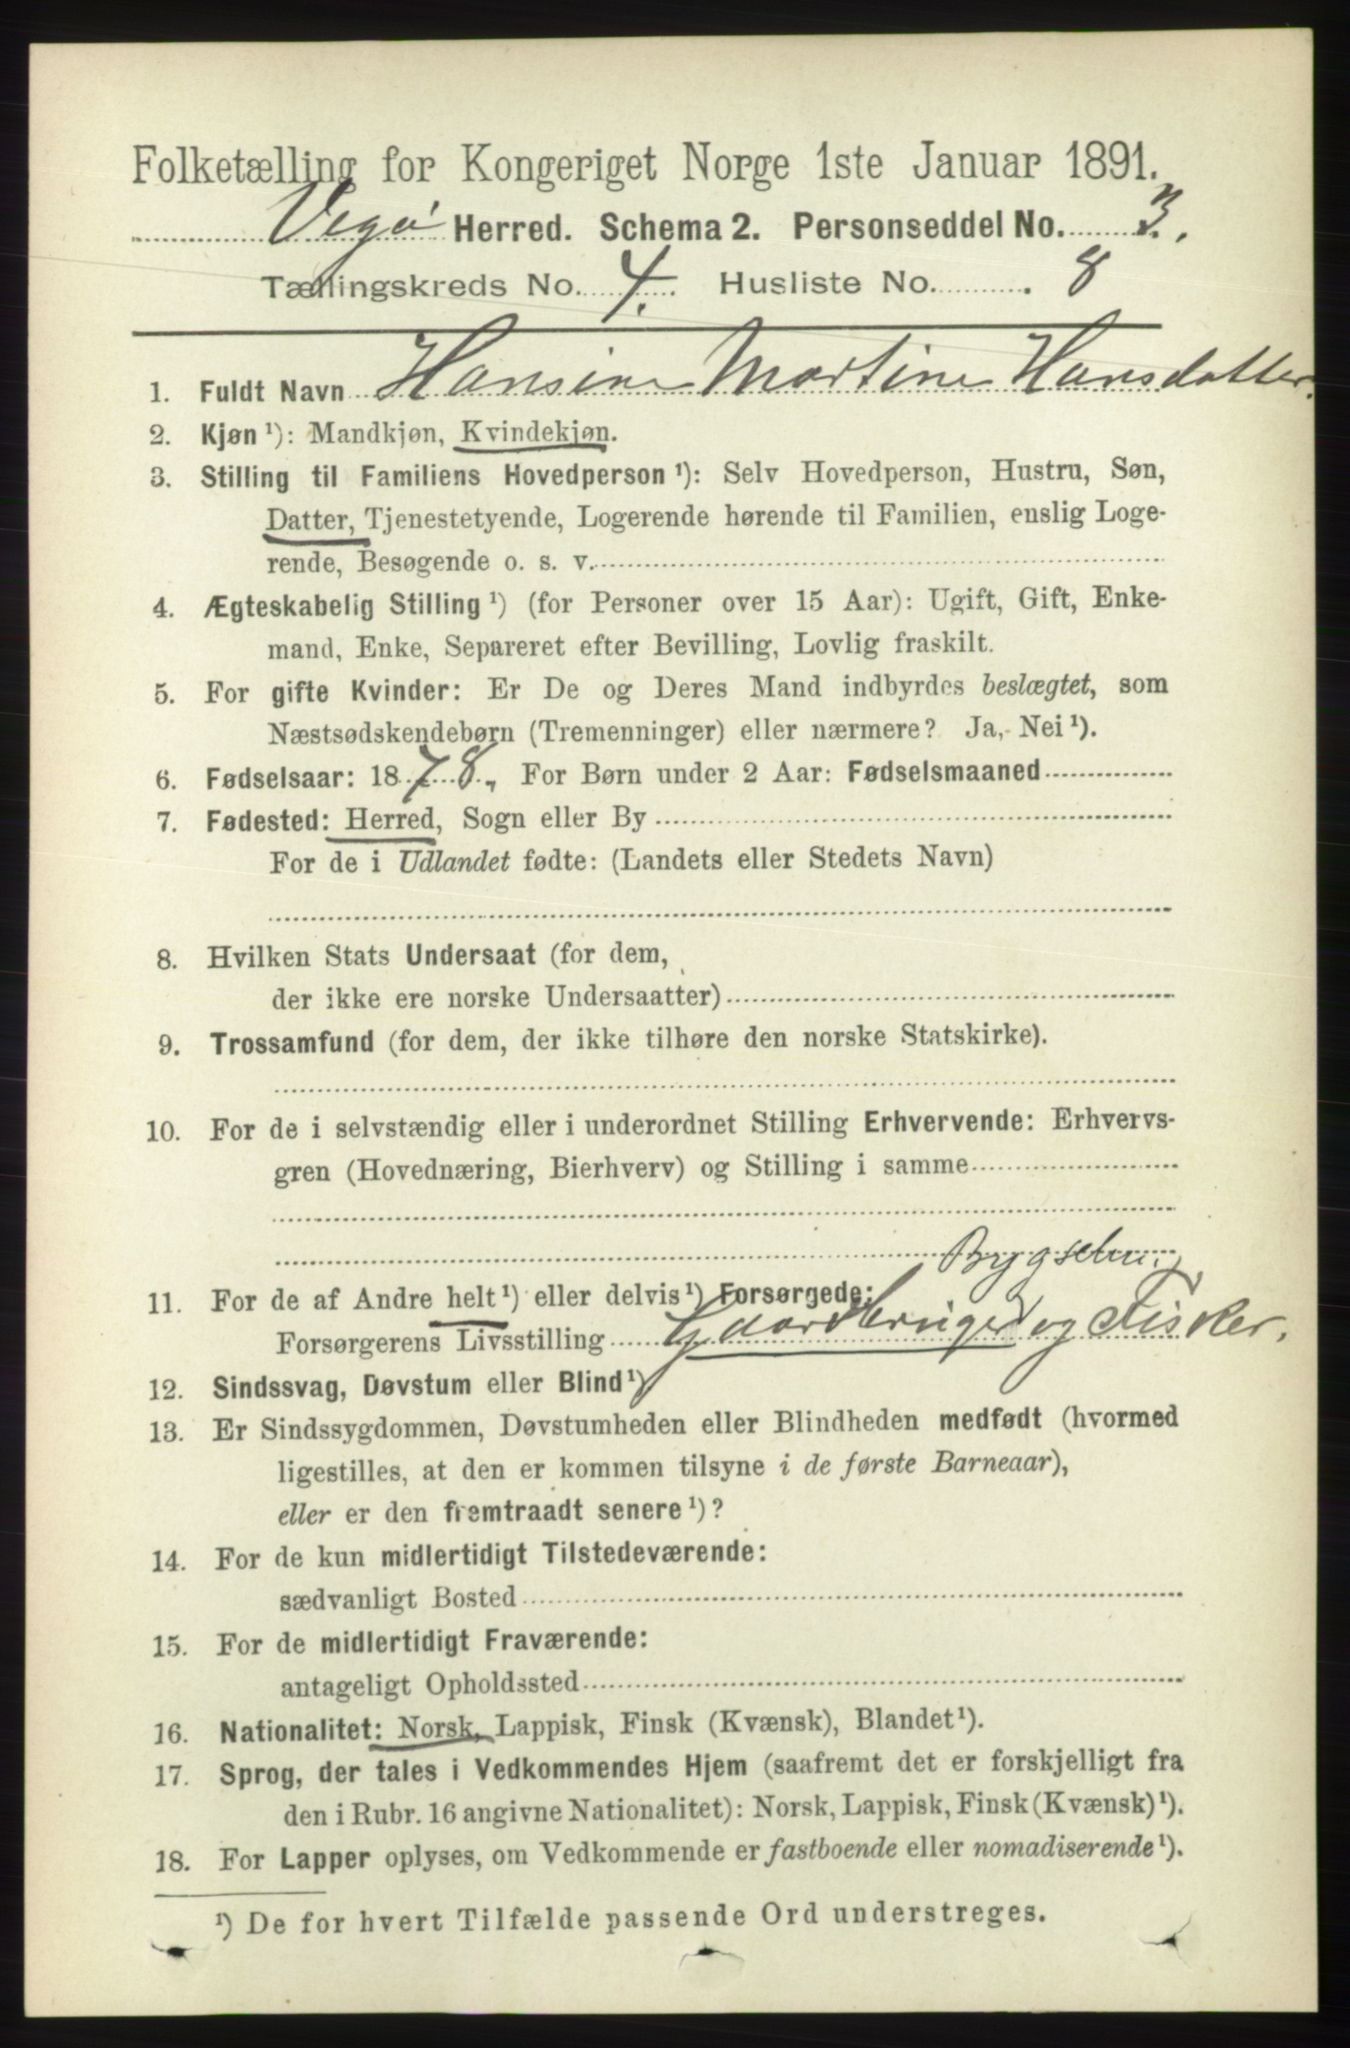 Folketælling for Kongeriget Norge 1ste Januar 1891.
Vegø Herred. Schema 2. Personseddel No. 3.
Tællingskreds No. 4. Husliste No. 8
1. Fuldt Navn Hansine Martine Hansdatter.
2. Kjøn ¹): Mandkjøn, Kvindekjøn.
3. Stilling til Familiens Hovedperson ¹): Selv Hovedperson, Hustru, Søn,
Datter, Tjenestetyende, Logerende hørende til Familien, enslig Loge-
rende, Besøgende o. s. v.
4. Ægteskabelig Stilling ¹) (for Personer over 15 Aar): Ugift, Gift, Enke-
mand, Enke, Separeret efter Bevilling, Lovlig fraskilt.
5. For gifte Kvinder: Er De og Deres Mand indbyrdes beslægtet, som
Næstsødskendebørn (Tremenninger) eller nærmere? Ja, Nei ¹).
6. Fødselsaar: 1878, For Børn under 2 Aar: Fødselsmaaned
7. Fødested: Herred, Sogn eller By
For de i Udlandet fødte: (Landets eller Stedets Navn)
8. Hvilken Stats Undersaat (for dem,
der ikke ere norske Undersaatter)
9. Trossamfund (for dem, der ikke tilhøre den norske Statskirke).
10. For de i selvstændig eller i underordnet Stilling Erhvervende: Erhvervs-
gren (Hovednæring, Bierhverv) og Stilling i samme
11. For de af Andre helt ¹) eller delvis ¹) Forsørgede:
Forsørgerens Livsstilling Gaardbruger og Fisker.
12. Sindssvag, Døvstum eller Blind ¹)
13. Er Sindssygdommen, Døvstumheden eller Blindheden medfødt (hvormed
ligestilles, at den er kommen tilsyne i de første Barneaar),
eller er den fremtraadt senere ¹)?
14. For de kun midlertidigt Tilstedeværende:
sædvanligt Bosted
15. For de midlertidigt Fraværende:
antageligt Opholdssted
16. Nationalitet: Norsk, Lappisk, Finsk (Kvænsk), Blandet ¹).
17. Sprog, der tales i Vedkommendes Hjem (saafremt det er forskjelligt fra
den i Rubr. 16 angivne Nationalitet): Norsk, Lappisk, Finsk (Kvænsk) ¹).
18. For Lapper oplyses, om Vedkommende er fastboende eller nomadiserende ¹).
¹) De for hvert Tilfælde passende Ord understreges.